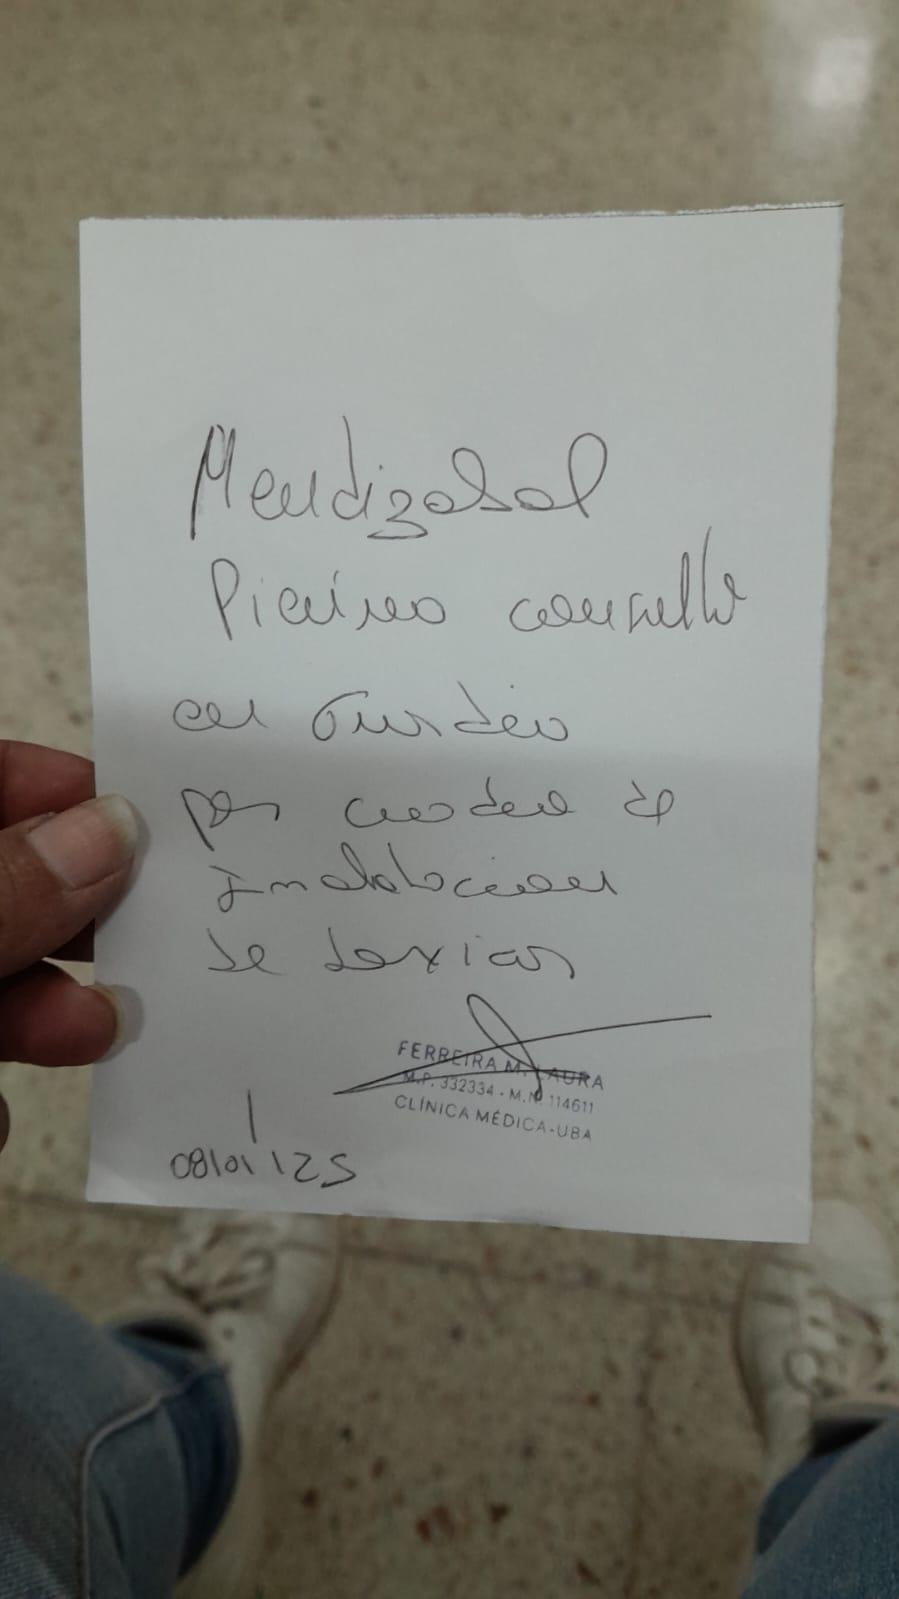 Mendizabal
consulta
en Guardia
por cuadro de
Inhalacion
de toxicos
FERREIRA M. LAURA
M.P. 332334 - M.N. 114611
CLÍNICA MÉDICA-UBA
08/01/25